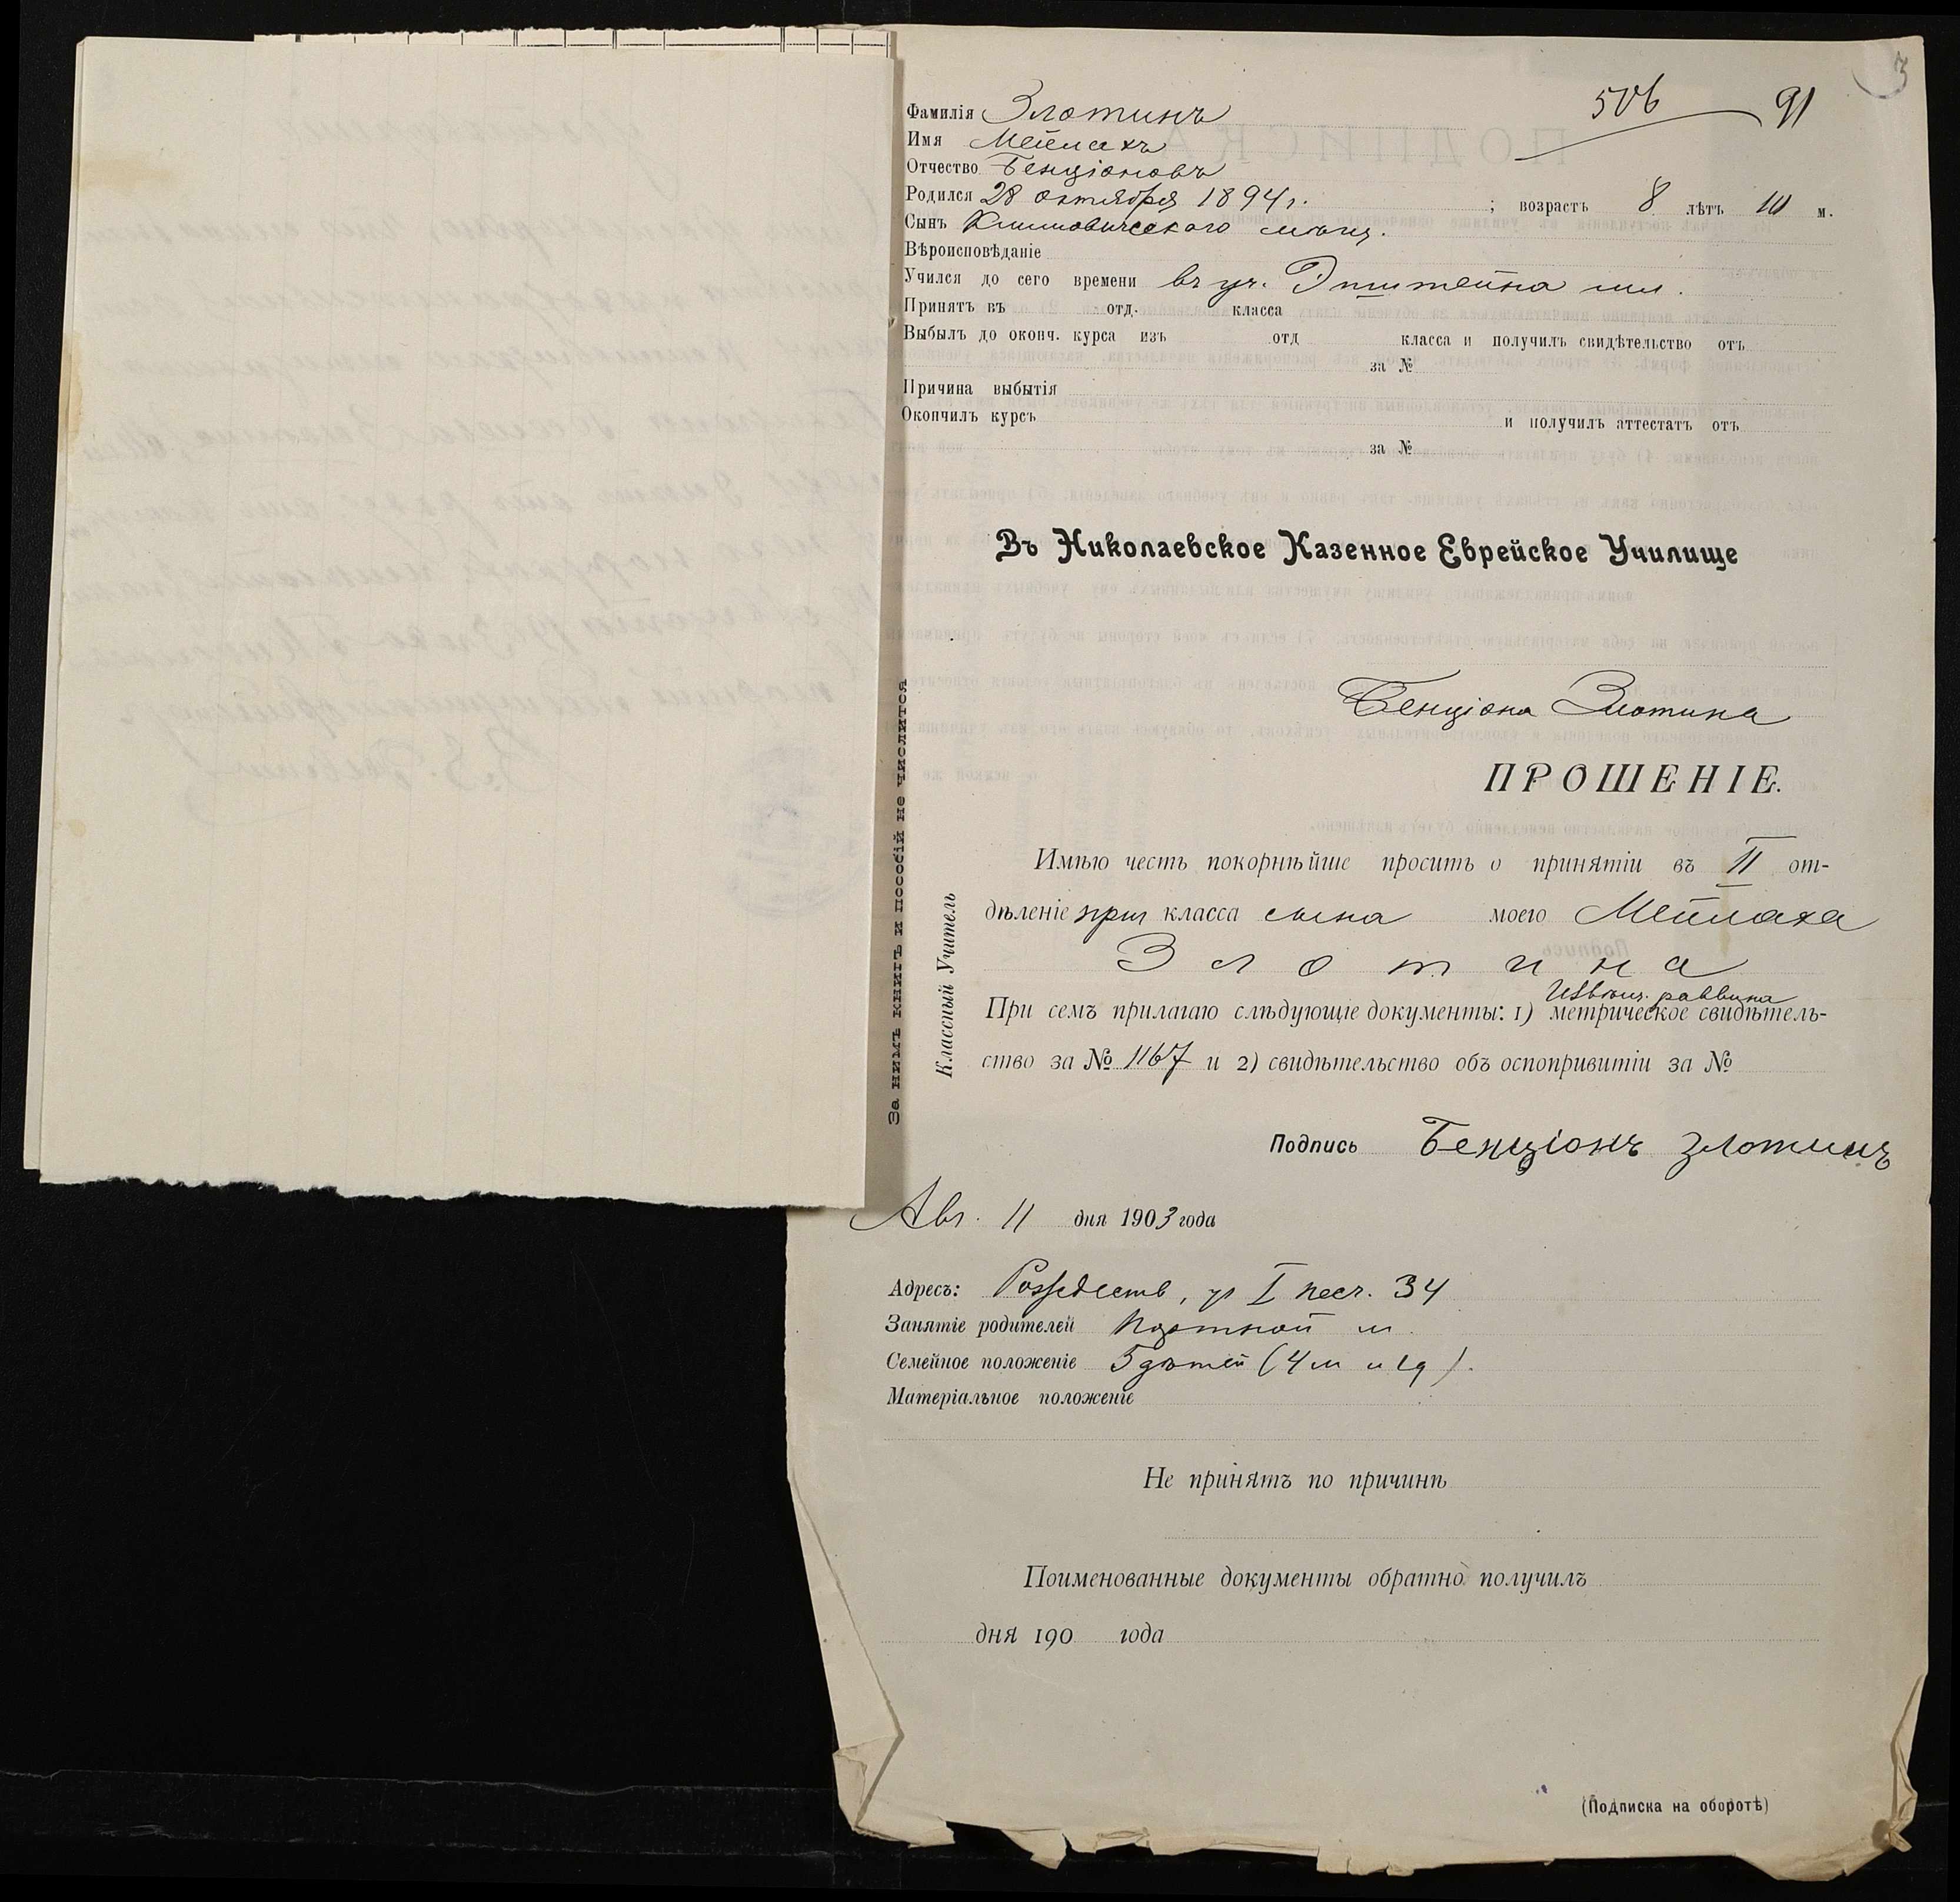 3
506 91
Фамилія Злотинъ
Имя Мейлахъ
Отчество Бенціоновъ
Родился 28 октября 1894 г. ; возрастъ 8 лѣтъ 10 м.
Сынъ Климовичского мѣщ.
Вѣроисповѣданіе
Учился до сего времени въ уч. Эпштейна
Принятъ въ отд. класса
Выбылъ до оконч. курса изъ отд класса и получилъ свидѣтельство отъ
за №
Причина выбытія
Окончилъ курсъ и получилъ аттестатъ отъ
за №
Въ Николаевское Казенное Еврейское Училище
Бенціона Злотина
ПРОШЕНІЕ.
Имѣю честь покорнѣйше просить о принятіи въ II от-
дѣленіе приг класса сына моего Мейлаха
Злотина
Извѣщ. раввина
При семъ прилагаю слѣдующіе документы: 1) метрическое свидѣтель-
ство за № 1167 и 2) свидѣтельство объ оспопривитіи за №
Подпись Бенціонъ Злотинъ
Авг. 11 дня 1903 года
Адресъ: Рождеств, уг I песч. 34
Занятіе родителей Портной м.
Семейное положеніе 5 дѣтей (4 м и 1 д).
Матеріальное положеніе
Не принятъ по причинѣ
Поименованные документы обратно получилъ
дня 190 года
(Подписка на оборотѣ)
За нимъ книгъ и пособій не числится
Классный Учитель